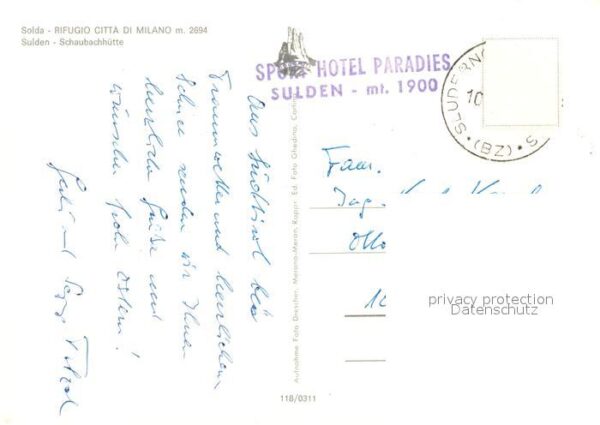 Solda - RIFUGIO CITTÀ DI MILANO m. 2694
Sulden - Schaubachhütte
SPORT HOTEL PARADIES
SULDEN - mt. 1900
SLUDERNO
(BZ)
10
Aus Südtirol bei
Traumwetter und herrlichem
Schnee senden wir Ihnen
herzliche Grüße und
wünschen frohe Ostern!
und
Fam.
Ing.
Otto
privacy protection
Datenschutz
Aufnahme Foto Dresfler, Merano-Meran, Rappr. Ed. Foto Ghedina, Cortina
118/0311